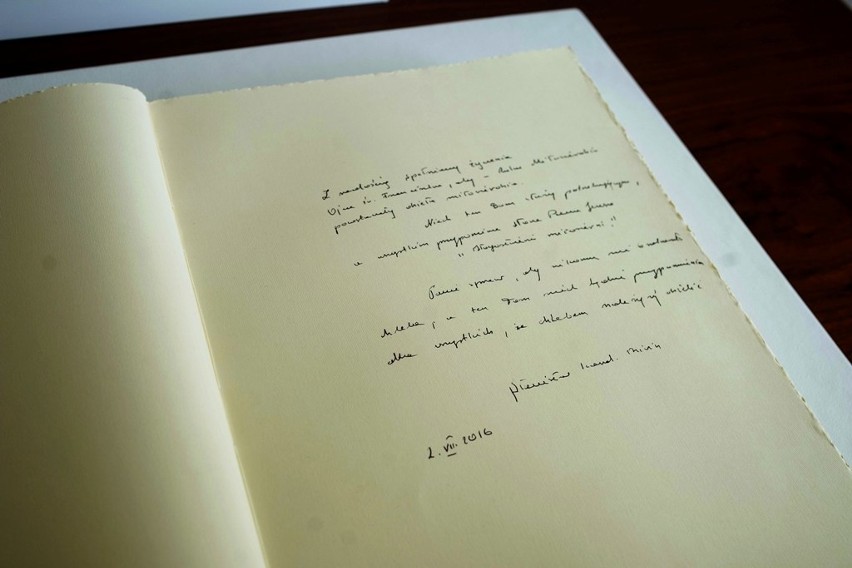 Z radością spełniamy życzenie
Ojca św. Franciszka, aby w Roku Miłosierdzia
powstawały dzieła miłosierdzia.
Niech ten Dom służy potrzebującym,
a wszystkim przypomina słowa Pana Jezusa
"Błogosławieni miłosierni."
Panie spraw, aby nikomu nie brakowało
chleba, a ten Dom niech będzie przypomnieniem
dla wszystkich, że chlebem należy się dzielić
2. VII. 2016